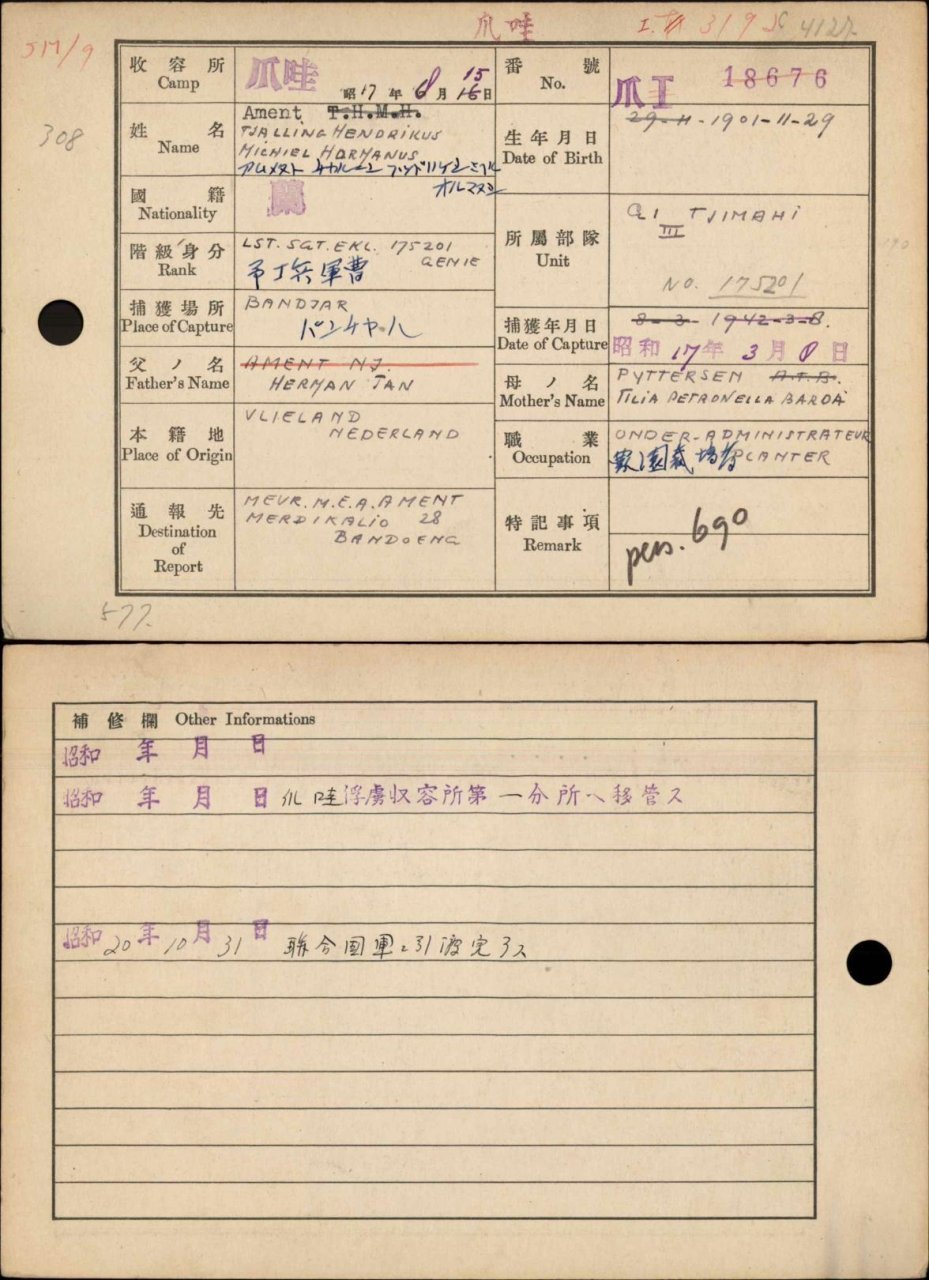 爪哇
4127
5M/9
308
收容所 Camp
爪哇
昭17年8月15日
番號 No.
爪I 18676
姓名 Name
Ament T.H.M.H.
TJALLING HENDRIKUS
MICHIEL HORMANUS
オルマヌス
生年月日 Date of Birth
29-11-1901-11-29
國籍 Nationality
蘭
所屬部隊 Unit
TJIMAHI
III
NO. 175201
階級身分 Rank
LST. SGT. EKL. 175201
GENIE
兵軍曹
捕獲場所 Place of Capture
BANDJAR
捕獲年月日 Date of Capture
8-3-1942-3-8.
昭和17年3月8日
父ノ名 Father's Name
AMENT NJ.
HERMAN JAN
母ノ名 Mother's Name
PYTTERSEN A.T.B.
TILIA PETRONELLA BARDA
本籍地 Place of Origin
VLIELAND
NEDERLAND
職業 Occupation
ONDER-ADMINISTRATEUR
PLANTER
通報先 Destination of Report
MEVR. M.E.A. AMENT
MERDIKALIO 28
BANDOENG
特記事項 Remark
pers. 690
577.
補修欄 Other Informations
昭和 年 月 日
昭和 年 月 日 爪哇俘虜収容所第一分所へ移管ス
昭和20年10月31日 聯合国軍ニ引渡完了ス